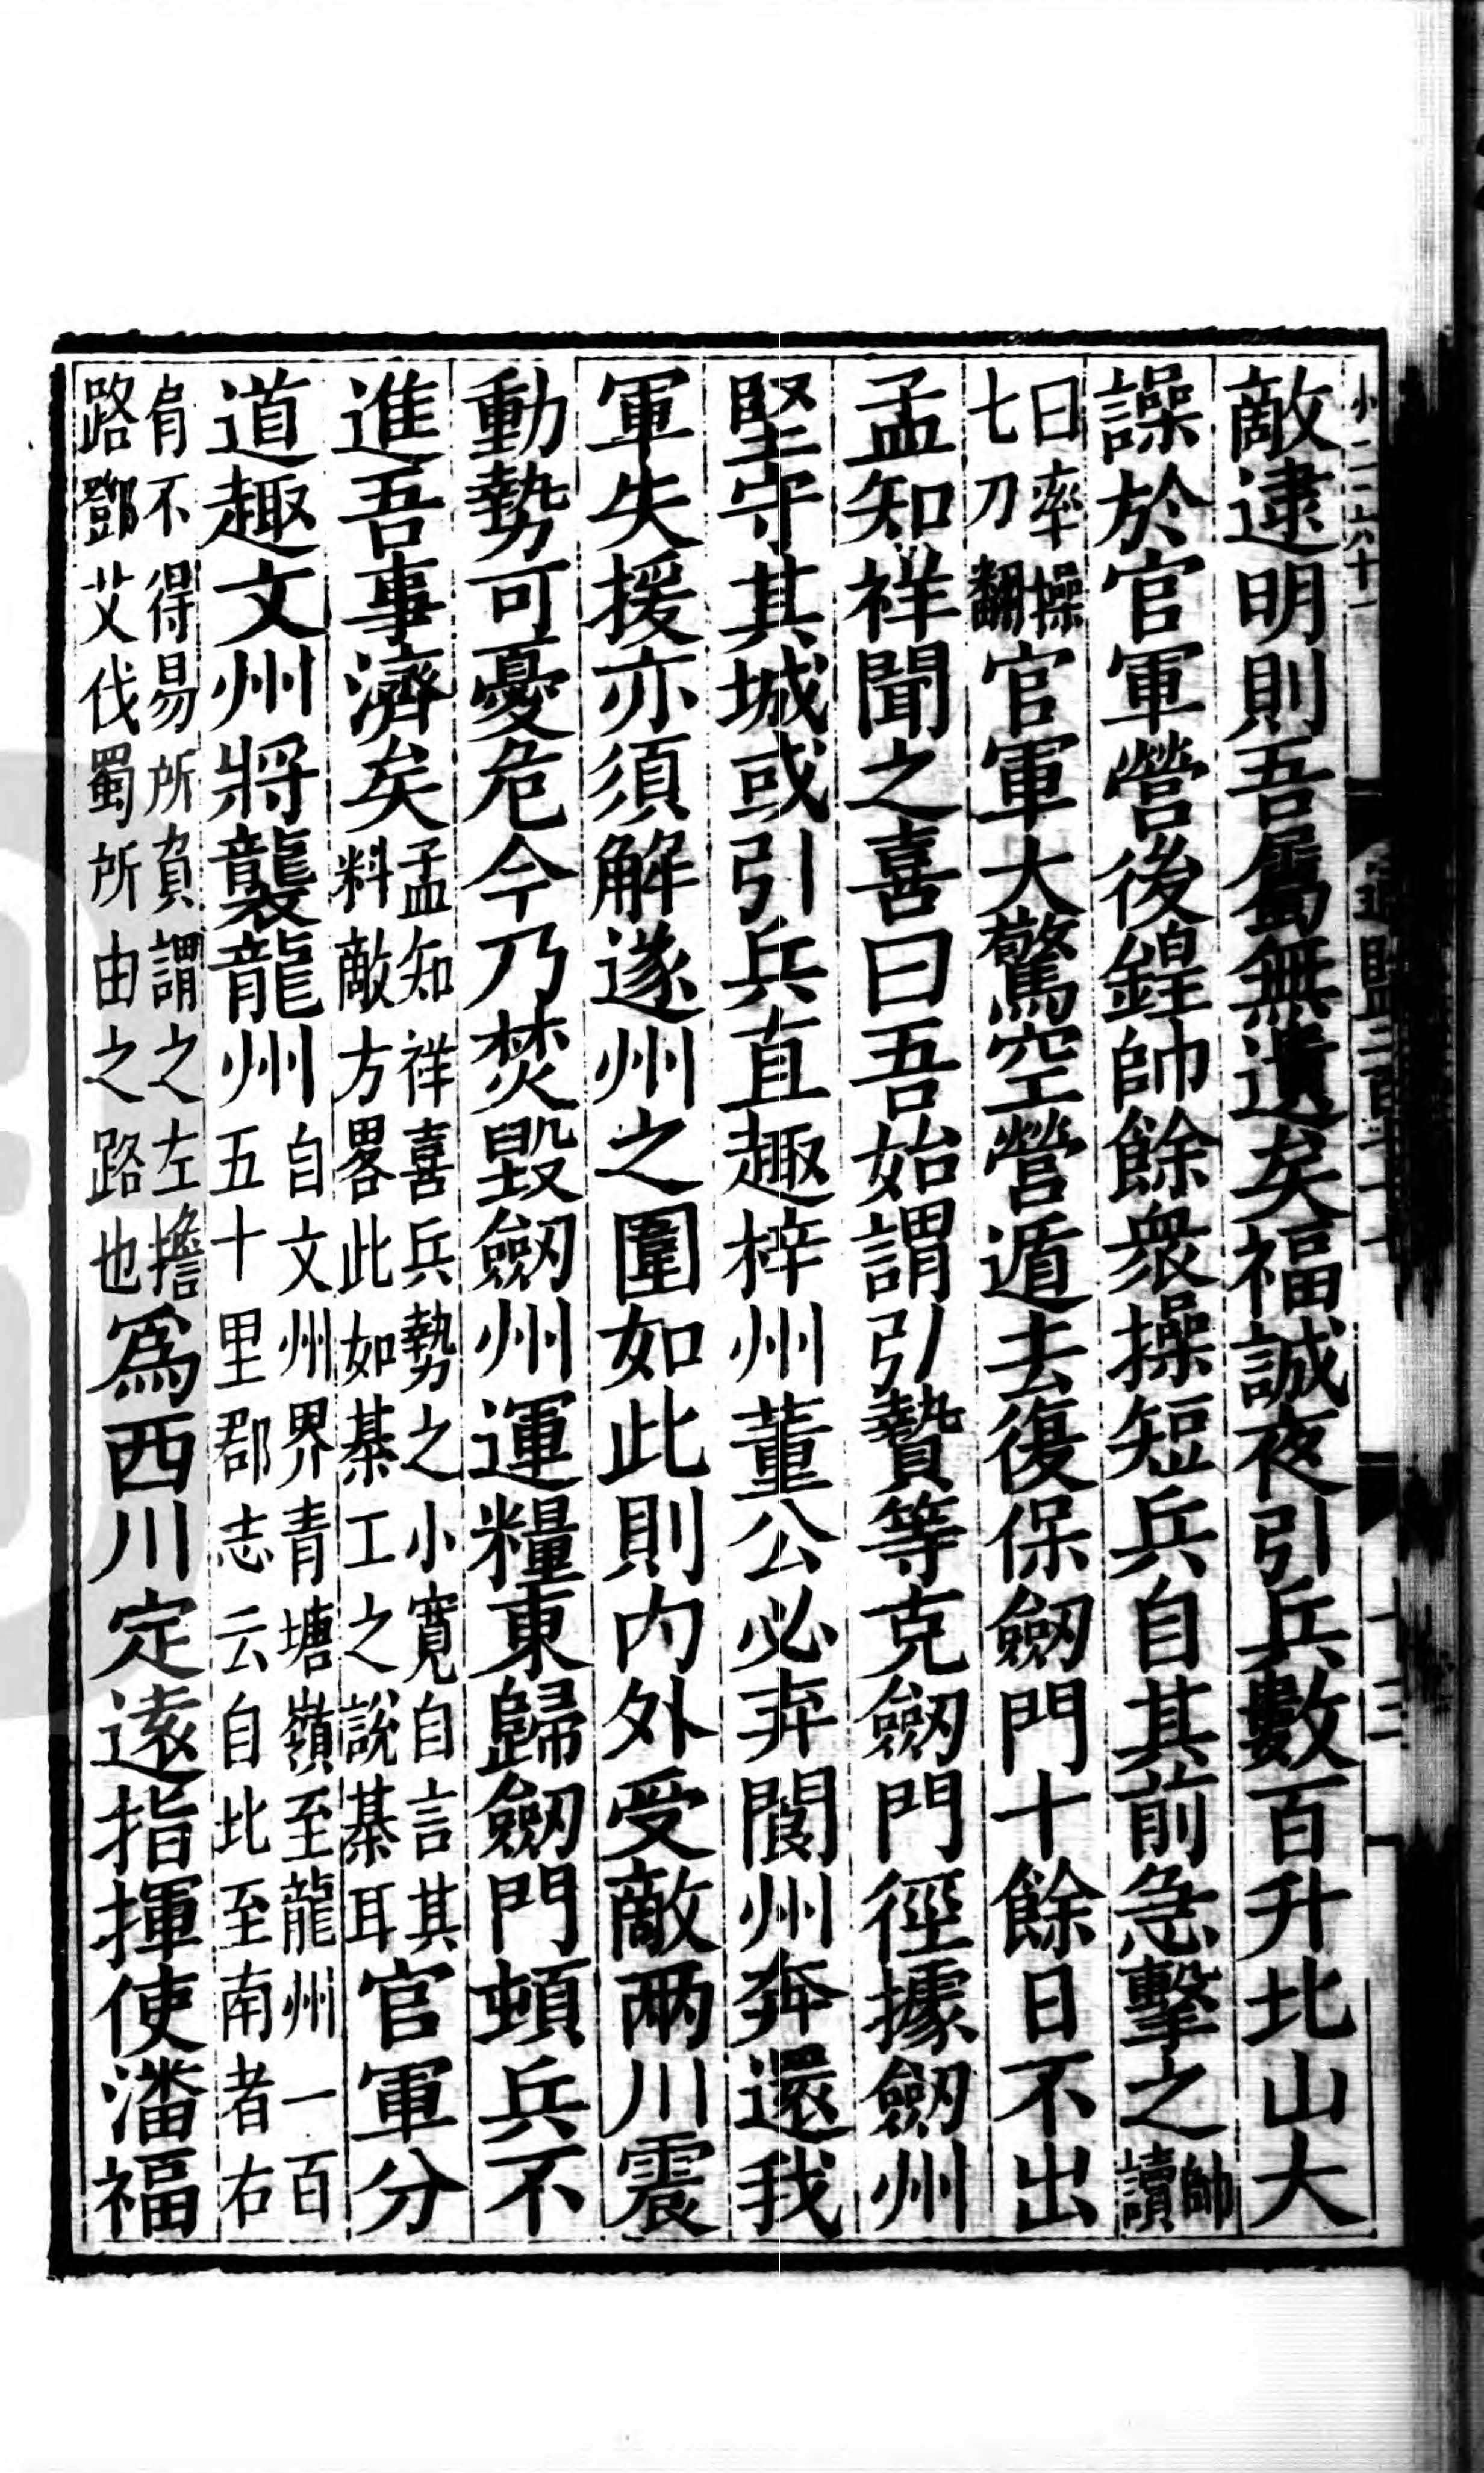 敵逮明則吾屬無遺矣福誠夜引兵數百升北山大
譟於官軍營後鍠帥餘衆操短兵自其前急擊之帥讀
曰率操七刀翻官軍大驚空營遁去復保劒門十餘日不出
孟知祥聞之喜曰吾始謂引贄等克劒門徑據劒州
堅守其城或引兵直趣梓州董公必弃閬州奔還我
軍失援亦須解遂州之圍如此則內外受敵兩川震
動勢可憂危今乃焚毀劒州運糧東歸劒門頓兵不
進吾事濟矣孟知祥喜兵勢之小寬自言其料敵方畧此如棊工之說棊耳官軍分
道趣文州將襲龍州自文州界青塘嶺至龍州一百五十里郡志云自北至南者右
肩不得易所負謂之左擔路鄧艾伐蜀所由之路也爲西川定遠指揮使潘福